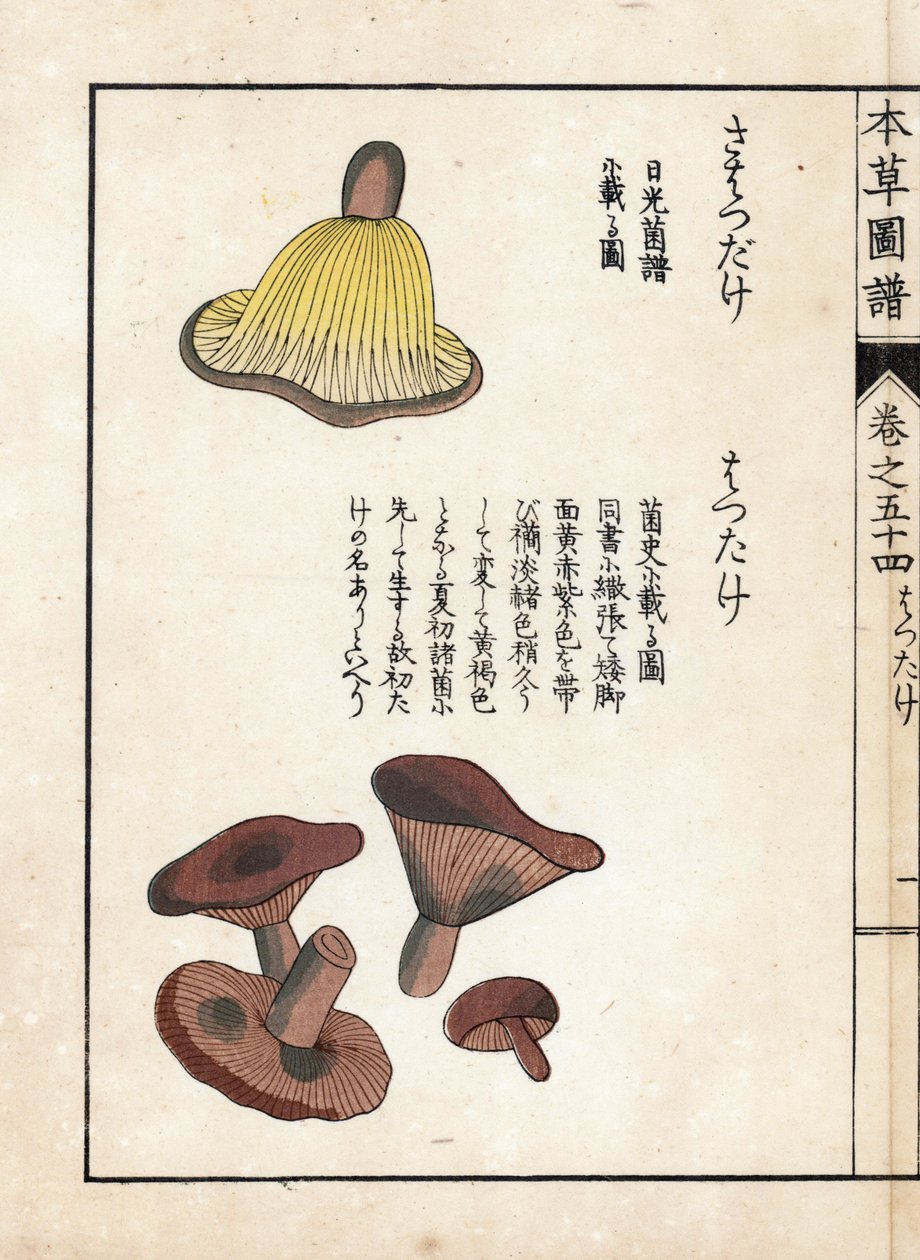 本草圖譜
卷之五十四
はつたけ
一
さはつだけ
日光菌譜
に載る圖
はつたけ
菌史に載る圖
同書に繖張て矮脚
面黄赤紫色を帯
び襉淡赭色稍久う
して変して黄褐色
となる夏初諸菌に
先して生する故初た
けの名ありといへり